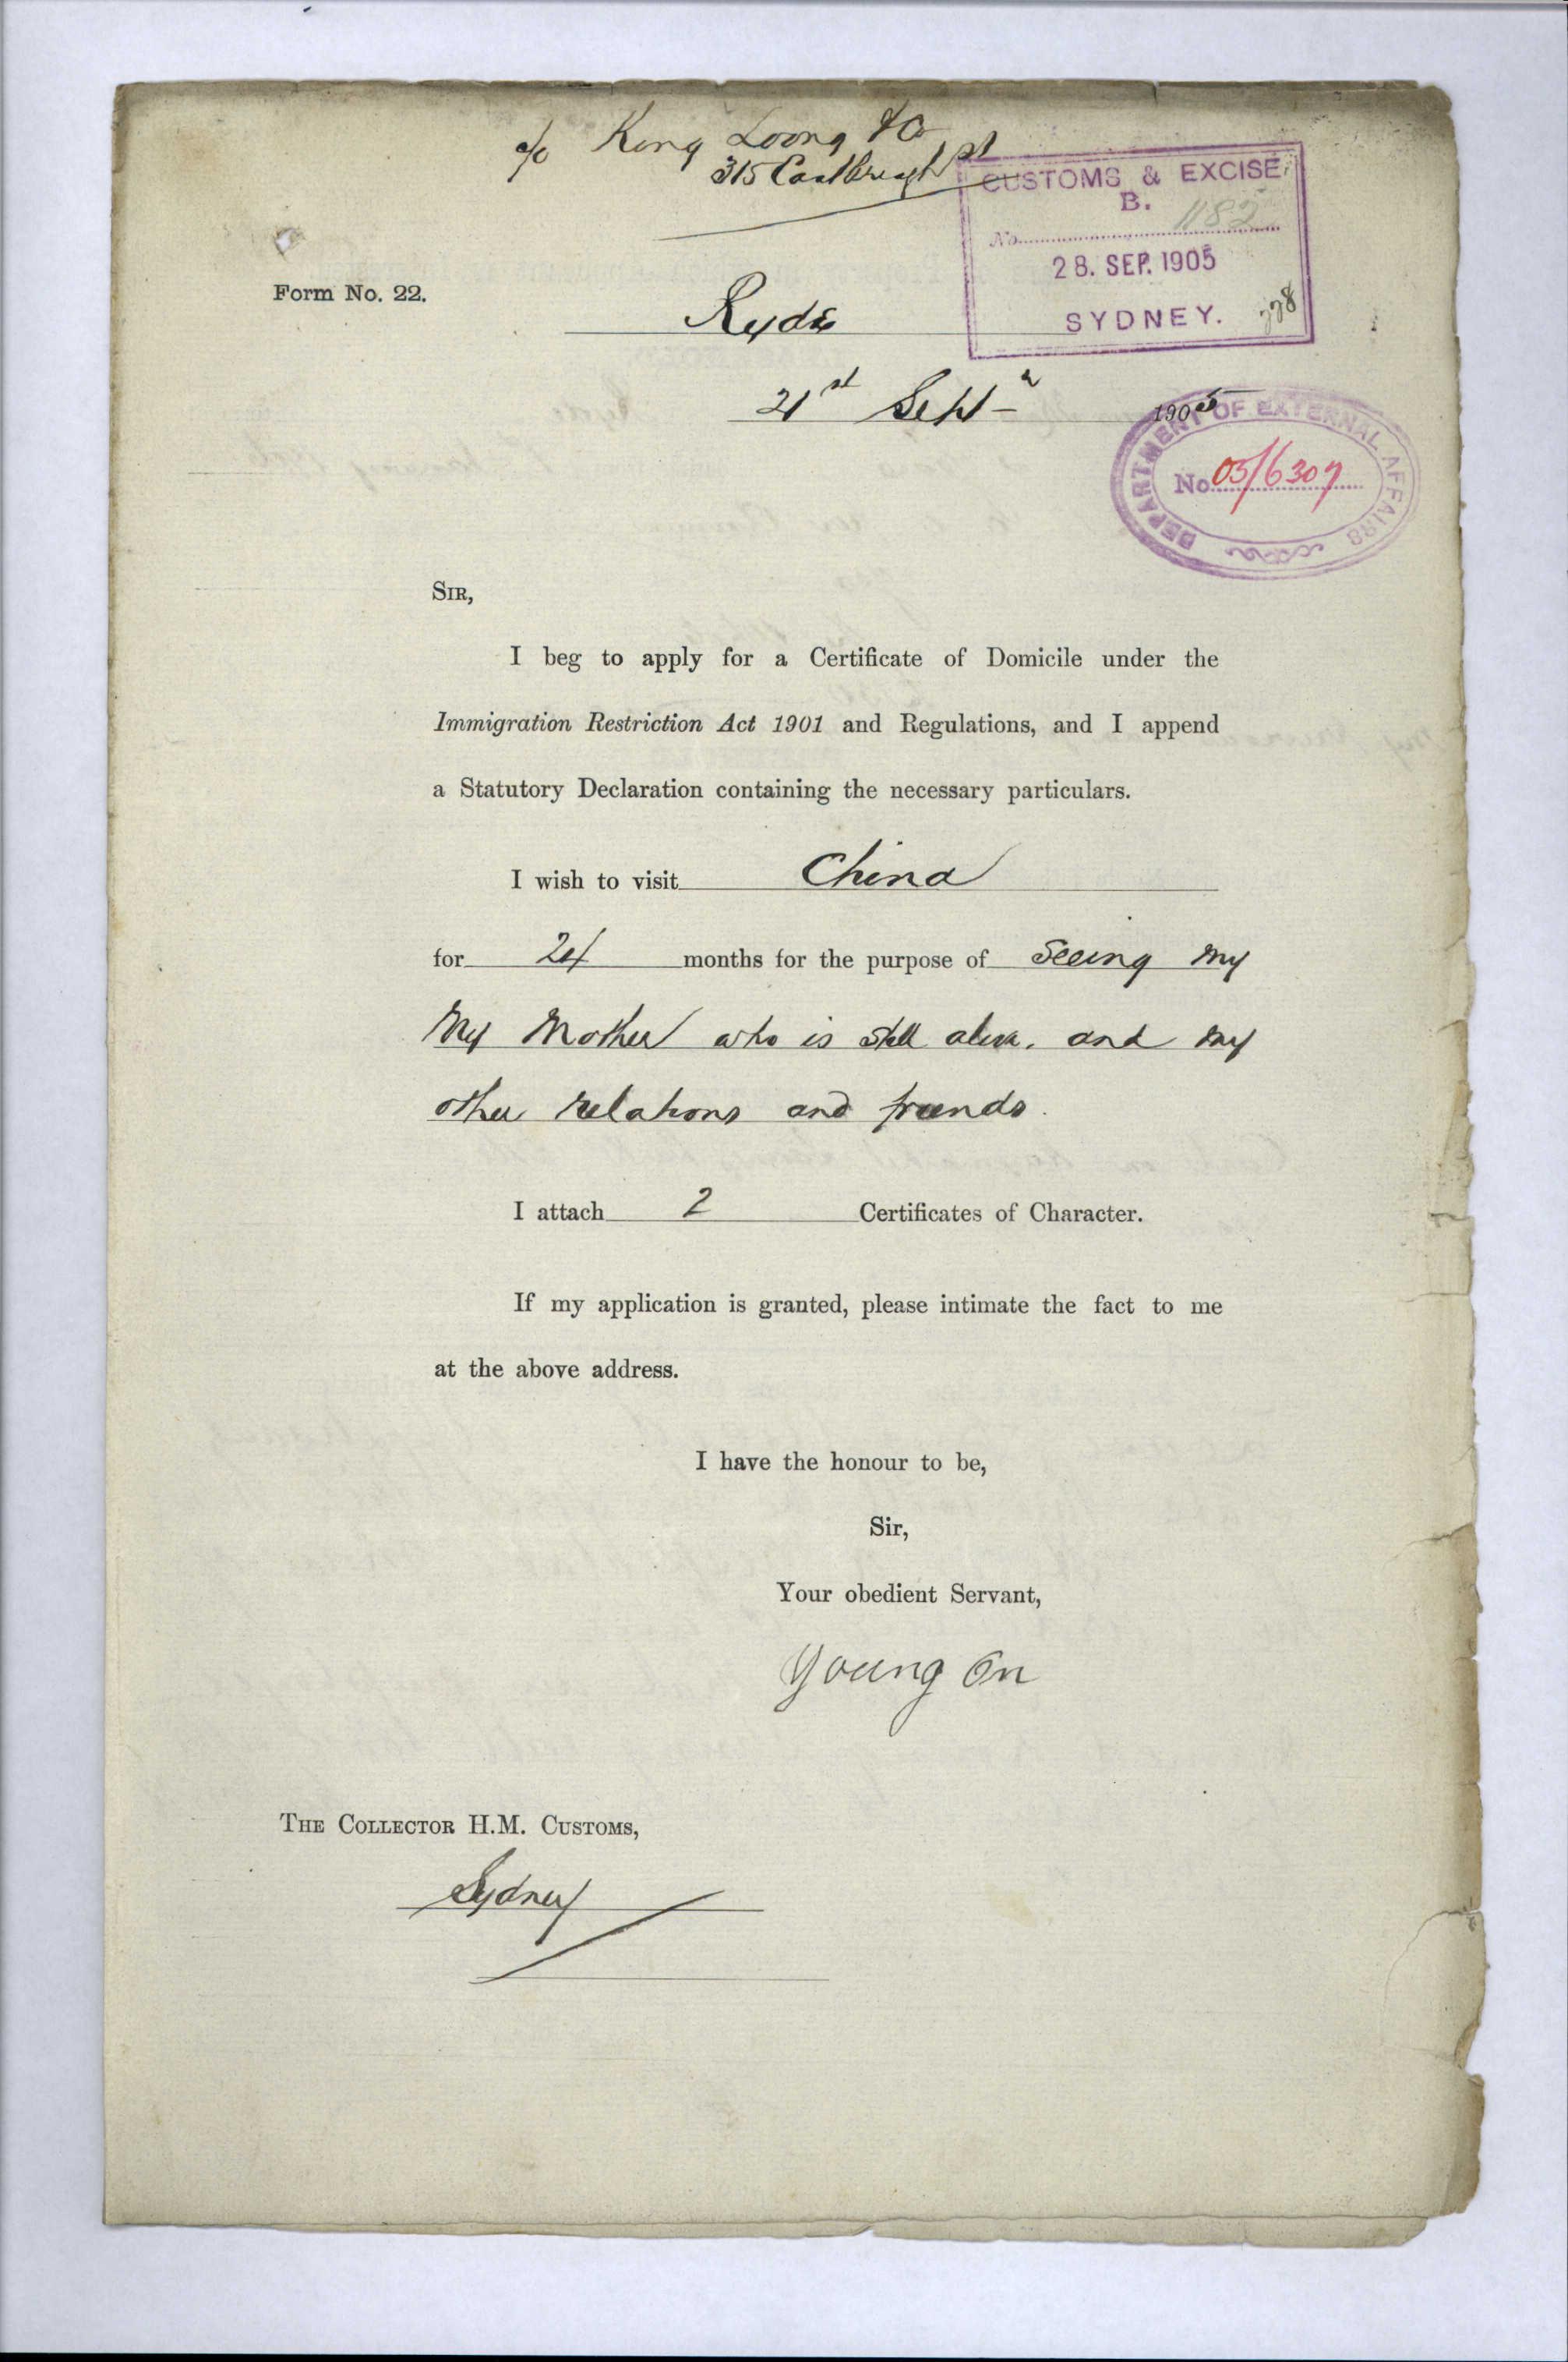 c/o Kong Loong & Co
315 Castlereagh st
CUSTOMS & EXCISE
B.
No 1182
28. SEP. 1905
SYDNEY.
Form No. 22.
Ryde
21st Sept 1905
DEPARTMENT OF EXTERNAL AFFAIRS
No 05/6307
SIR,
I beg to apply for a Certificate of Domicile under the
Immigration Restriction Act 1901 and Regulations, and I append
a Statutory Declaration containing the necessary particulars.
I wish to visit China
for 24 months for the purpose of Seeing my
My Mother who is still alive. and my
other relations and friends.
I attach 2 Certificates of Character.
If my application is granted, please intimate the fact to me
at the above address.
I have the honour to be,
Sir,
Your obedient Servant,
Young On
THE COLLECTOR H.M. CUSTOMS,
Sydney